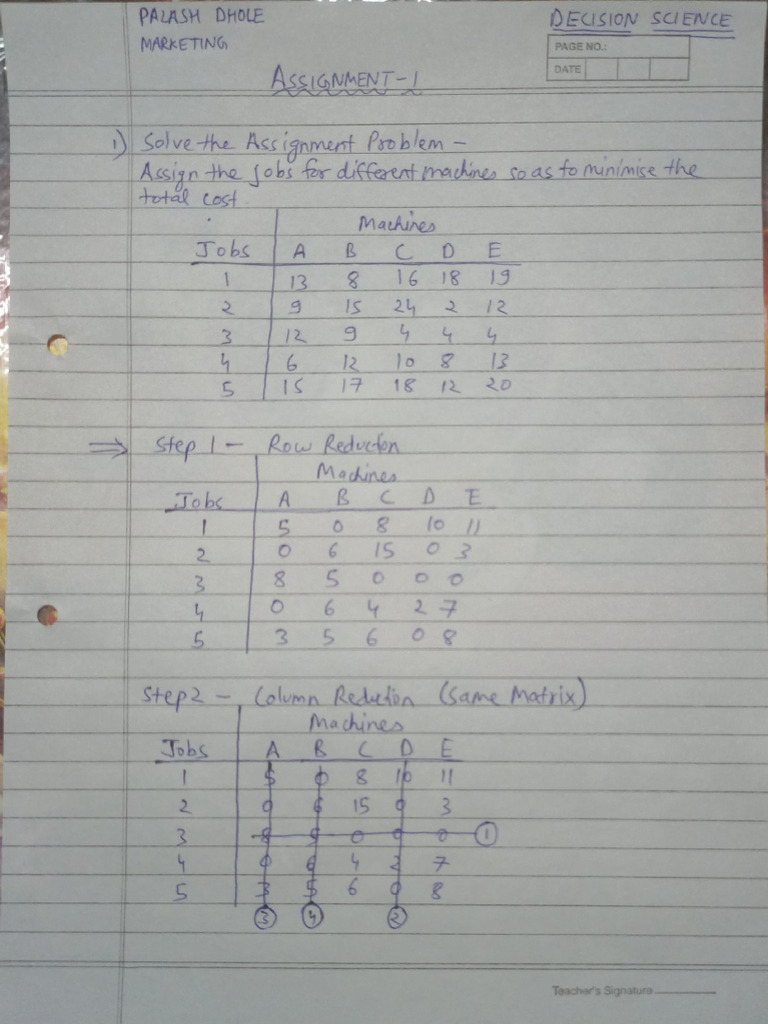 PALASH DHOLE DECISION SCIENCE
MARKETING PAGE NO.:
DATE
ASSIGNMENT-1
1) Solve the Assignment Problem -
Assign the jobs for different machines so as to minimise the
total cost.
Machines
Jobs A B C D E
1 13 8 16 18 19
2 9 15 24 2 12
3 12 9 4 4 4
4 6 12 10 8 13
5 15 17 18 12 20
⇒ Step 1 - Row Reduction
Machines
Jobs A B C D E
1 5 0 8 10 11
2 0 6 15 0 3
3 8 5 0 0 0
4 0 6 4 2 7
5 3 5 6 0 8
Step 2 - Column Reduction (Same Matrix)
Machines
Jobs A B C D E
1 5 0 8 10 11
2 0 6 15 0 3
3 8 5 0 0 0 1
4 0 6 4 2 7
5 3 5 6 0 8
3 4 2
Teacher's Signature